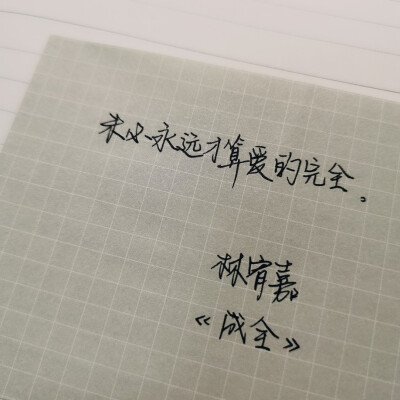 未必永远才算爱的完全。
林宥嘉
《成全》